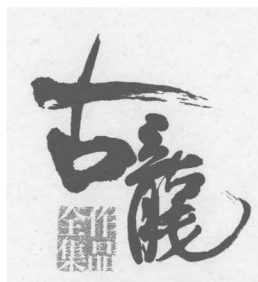 古龍
作品
全集